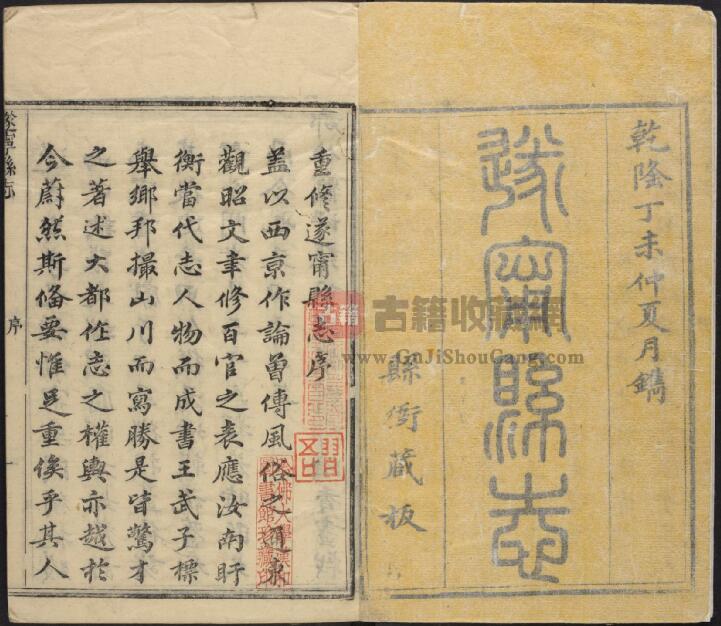 乾隆丁未仲夏月鐫
遂甯縣志
縣衙藏板
重修遂甯縣志序
蓋以西京作論曾傳風俗之通東
觀昭文聿修百官之表應汝南盱
衡當代志人物而成書王武子標
舉鄉邦撮山川而寫勝是皆驚才
之著述大都作志之權輿亦越於
今蔚然斯备要惟足重俟乎其人
遂寧縣志
序
一
古籍
古籍收藏網
www.GuJiShouCang.com